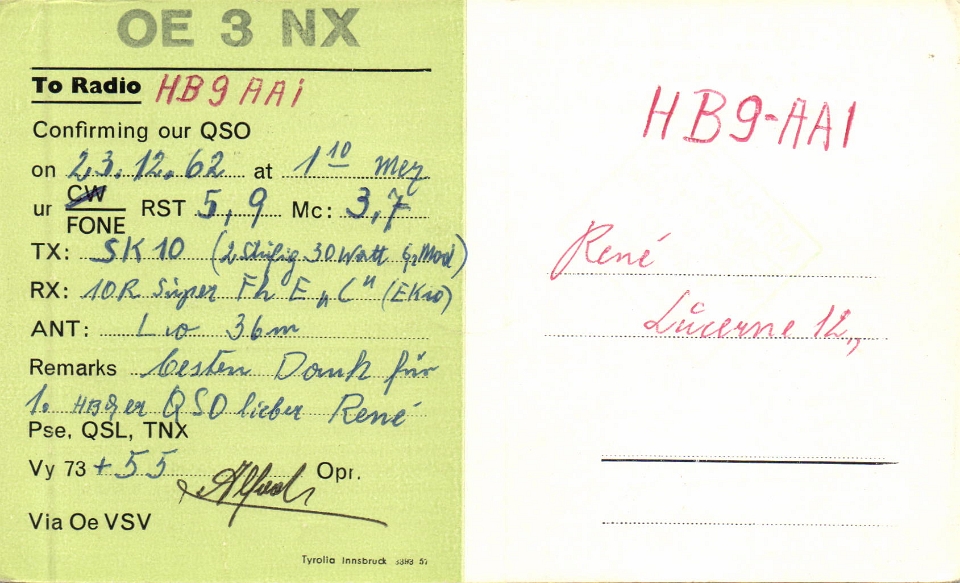 OE 3 NX
To Radio HB9AA1
Confirming our QSO
on 23.12.62 at 1 10 Mez
ur CW RST 5,9 Mc: 3,7
FONE
TX: SK10 (2 Stufig 30 Watt G2 Mod)
RX: 10R Super Fh E „C“ (EK10)
ANT: L 10 36m
Remarks besten Dank für
1. HB9er QSO lieber René
Pse, QSL, TNX
Vy 73 + 55 Alfred Opr.
Via Oe VSV
Tyrolia Innsbruck 3393 57
HB9-AA1
René
Lucerne 12,,